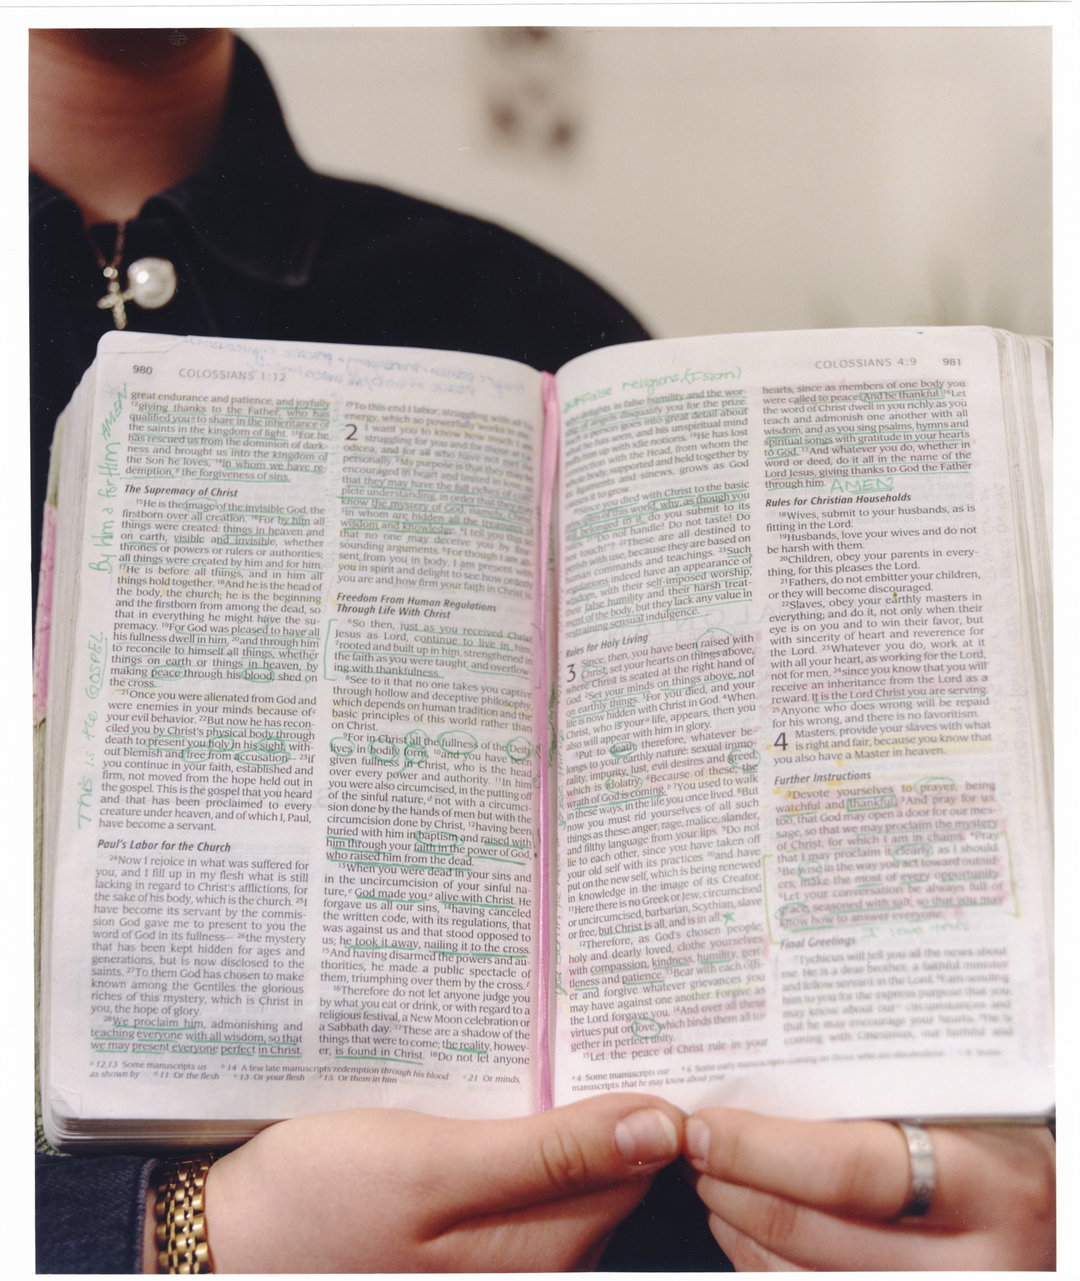 980
COLOSSIANS 1:12
great endurance and patience, and joyfully
¹²giving thanks to the Father, who has
qualified you to share in the inheritance of
the saints in the kingdom of light. ¹³For he
has rescued us from the dominion of dark-
ness and brought us into the kingdom of
the Son he loves, ¹⁴in whom we have re-
demption, the forgiveness of sins.
The Supremacy of Christ
¹⁵He is the image of the invisible God, the
firstborn over all creation. ¹⁶For by him all
things were created: things in heaven and
on earth, visible and invisible, whether
thrones or powers or rulers or authorities;
all things were created by him and for him.
¹⁷He is before all things, and in him all
things hold together. ¹⁸And he is the head of
the body, the church; he is the beginning
and the firstborn from among the dead, so
that in everything he might have the su-
premacy. ¹⁹For God was pleased to have all
his fullness dwell in him, ²⁰and through him
to reconcile to himself all things, whether
things on earth or things in heaven, by
making peace through his blood, shed on
the cross.
²¹Once you were alienated from God and
were enemies in your minds because of
your evil behavior. ²²But now he has recon-
ciled you by Christ's physical body through
death to present you holy in his sight, with-
out blemish and free from accusation— ²³if
you continue in your faith, established and
firm, not moved from the hope held out in
the gospel. This is the gospel that you heard
and that has been proclaimed to every
creature under heaven, and of which I, Paul,
have become a servant.
Paul's Labor for the Church
²⁴Now I rejoice in what was suffered for
you, and I fill up in my flesh what is still
lacking in regard to Christ's afflictions, for
the sake of his body, which is the church. ²⁵I
have become its servant by the commis-
sion God gave me to present to you the
word of God in its fullness— ²⁶the mystery
that has been kept hidden for ages and
generations, but is now disclosed to the
saints. ²⁷To them God has chosen to make
known among the Gentiles the glorious
riches of this mystery, which is Christ in
you, the hope of glory.
²⁸We proclaim him, admonishing and
teaching everyone with all wisdom, so that
we may present everyone perfect in Christ.
THIS is the GOSPEL
By Him & for Him AMEN
²⁹To this end I labor, struggling with all
energy, which so powerfully works in
2 I want you to know how much
struggling for you and for those
odicea, and for all who have not met
personally. ²My purpose is that they
encouraged in heart and united in love,
that they may have the full riches of com-
plete understanding, in order that they
know the mystery of God, namely, Christ,
³in whom are hidden all the treasures
wisdom and knowledge. ⁴I tell you this
that no one may deceive you by fine-
sounding arguments. ⁵For though I am ab-
sent from you in body, I am present with
you in spirit and delight to see how orderly
you are and how firm your faith in Christ is.
Freedom From Human Regulations
Through Life With Christ
⁶So then, just as you received Christ
Jesus as Lord, continue to live in him,
⁷rooted and built up in him, strengthened in
the faith as you were taught, and overflow-
ing with thankfulness.
⁸See to it that no one takes you captive
through hollow and deceptive philosophy,
which depends on human tradition and the
basic principles of this world rather than
on Christ.
⁹For in Christ all the fullness of the Deity
lives in bodily form, ¹⁰and you have been
given fullness in Christ, who is the head
over every power and authority. ¹¹In him
you were also circumcised, in the putting off
of the sinful nature, not with a circumci-
sion done by the hands of men but with the
circumcision done by Christ, ¹²having been
buried with him in baptism and raised with
him through your faith in the power of God,
who raised him from the dead.
¹³When you were dead in your sins and
in the uncircumcision of your sinful na-
ture, God made you alive with Christ. He
forgave us all our sins, ¹⁴having canceled
the written code, with its regulations, that
was against us and that stood opposed to
us; he took it away, nailing it to the cross.
¹⁵And having disarmed the powers and au-
thorities, he made a public spectacle of
them, triumphing over them by the cross.
¹⁶Therefore do not let anyone judge you
by what you eat or drink, or with regard to a
religious festival, a New Moon celebration or
a Sabbath day. ¹⁷These are a shadow of the
things that were to come; the reality, howev-
er, is found in Christ. ¹⁸Do not let anyone
12,13 Some manuscripts us 14 A few late manuscripts redemption through his blood 21 Or minds,
as shown by 11 Or the flesh 13 Or your flesh 15 Or them in him
COLOSSIANS 4:9
981
False religions (Islam)
delights in false humility and the wor-
disqualify you for the prize.
goes into great detail about
he has seen, and his unspiritual mind
up with idle notions. ¹⁹He has lost
connection with the Head, from whom the
whole body, supported and held together by
ligaments and sinews, grows as God
causes it to grow.
you died with Christ to the basic
of this world, why, as though you
belonged to it, do you submit to its
²¹"Do not handle! Do not taste! Do
not touch!"? ²²These are all destined to
perish with use, because they are based on
human commands and teachings. ²³Such
regulations indeed have an appearance of
wisdom, with their self-imposed worship,
their false humility and their harsh treat-
ment of the body, but they lack any value in
restraining sensual indulgence.
Rules for Holy Living
3 Since, then, you have been raised with
Christ, set your hearts on things above,
where Christ is seated at the right hand of
God. ²Set your minds on things above, not
on earthly things. ³For you died, and your
life is now hidden with Christ in God. ⁴When
Christ, who is your life, appears, then you
also will appear with him in glory.
⁵Put to death, therefore, whatever be-
longs to your earthly nature: sexual immo-
rality, impurity, lust, evil desires and greed,
which is idolatry. ⁶Because of these, the
wrath of God is coming. ⁷You used to walk
in these ways, in the life you once lived. ⁸But
now you must rid yourselves of all such
things as these: anger, rage, malice, slander,
and filthy language from your lips. ⁹Do not
lie to each other, since you have taken off
your old self with its practices ¹⁰and have
put on the new self, which is being renewed
in knowledge in the image of its Creator.
¹¹Here there is no Greek or Jew, circumcised
or uncircumcised, barbarian, Scythian, slave
or free, but Christ is all, and is in all.
¹²Therefore, as God's chosen people,
holy and dearly loved, clothe yourselves
with compassion, kindness, humility, gen-
tleness and patience. ¹³Bear with each oth-
er and forgive whatever grievances you
may have against one another. Forgive as
the Lord forgave you. ¹⁴And over all these
virtues put on love, which binds them all to-
gether in perfect unity.
¹⁵Let the peace of Christ rule in your
hearts, since as members of one body you
were called to peace. And be thankful. ¹⁶Let
the word of Christ dwell in you richly as you
teach and admonish one another with all
wisdom, and as you sing psalms, hymns and
spiritual songs with gratitude in your hearts
to God. ¹⁷And whatever you do, whether in
word or deed, do it all in the name of the
Lord Jesus, giving thanks to God the Father
through him. AMEN
Rules for Christian Households
¹⁸Wives, submit to your husbands, as is
fitting in the Lord.
¹⁹Husbands, love your wives and do not
be harsh with them.
²⁰Children, obey your parents in every-
thing, for this pleases the Lord.
²¹Fathers, do not embitter your children,
or they will become discouraged.
²²Slaves, obey your earthly masters in
everything; and do it, not only when their
eye is on you and to win their favor, but
with sincerity of heart and reverence for
the Lord. ²³Whatever you do, work at it
with all your heart, as working for the Lord,
not for men, ²⁴since you know that you will
receive an inheritance from the Lord as a
reward. It is the Lord Christ you are serving.
²⁵Anyone who does wrong will be repaid
for his wrong, and there is no favoritism.
4 Masters, provide your slaves with what
is right and fair, because you know that
you also have a Master in heaven.
Further Instructions
²Devote yourselves to prayer, being
watchful and thankful. ³And pray for us,
too, that God may open a door for our mes-
sage, so that we may proclaim the mystery
of Christ, for which I am in chains. ⁴Pray
that I may proclaim it clearly, as I should.
⁵Be wise in the way you act toward outsid-
ers; make the most of every opportunity.
⁶Let your conversation be always full of
grace, seasoned with salt, so that you may
know how to answer everyone.
Final Greetings
⁷Tychicus will tell you all the news about
me. He is a dear brother, a faithful minister
and fellow servant in the Lord. ⁸I am sending
him to you for the express purpose that you
may know about our circumstances and
that he may encourage your hearts. ⁹He is
coming with Onesimus, our faithful and
4 Some manuscripts our 6 Some early manuscripts
manuscripts that he may know about your